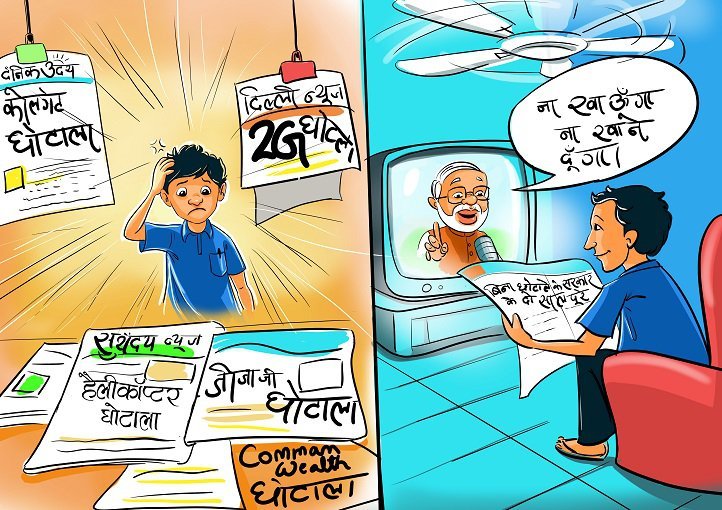 दैनिक उदय
कोलगेट
घोटाला
दिल्ली न्यूज
2G घोटाला
सुर्योदय न्यूज
हैलीकॉप्टर
घोटाला
जीजा जी
घोटाला
Comman
Wealth
घोटाला
ना खाऊँगा
ना खाने
दूँगा।
बिना घोटाले के सरकार
के दो साल पूरे